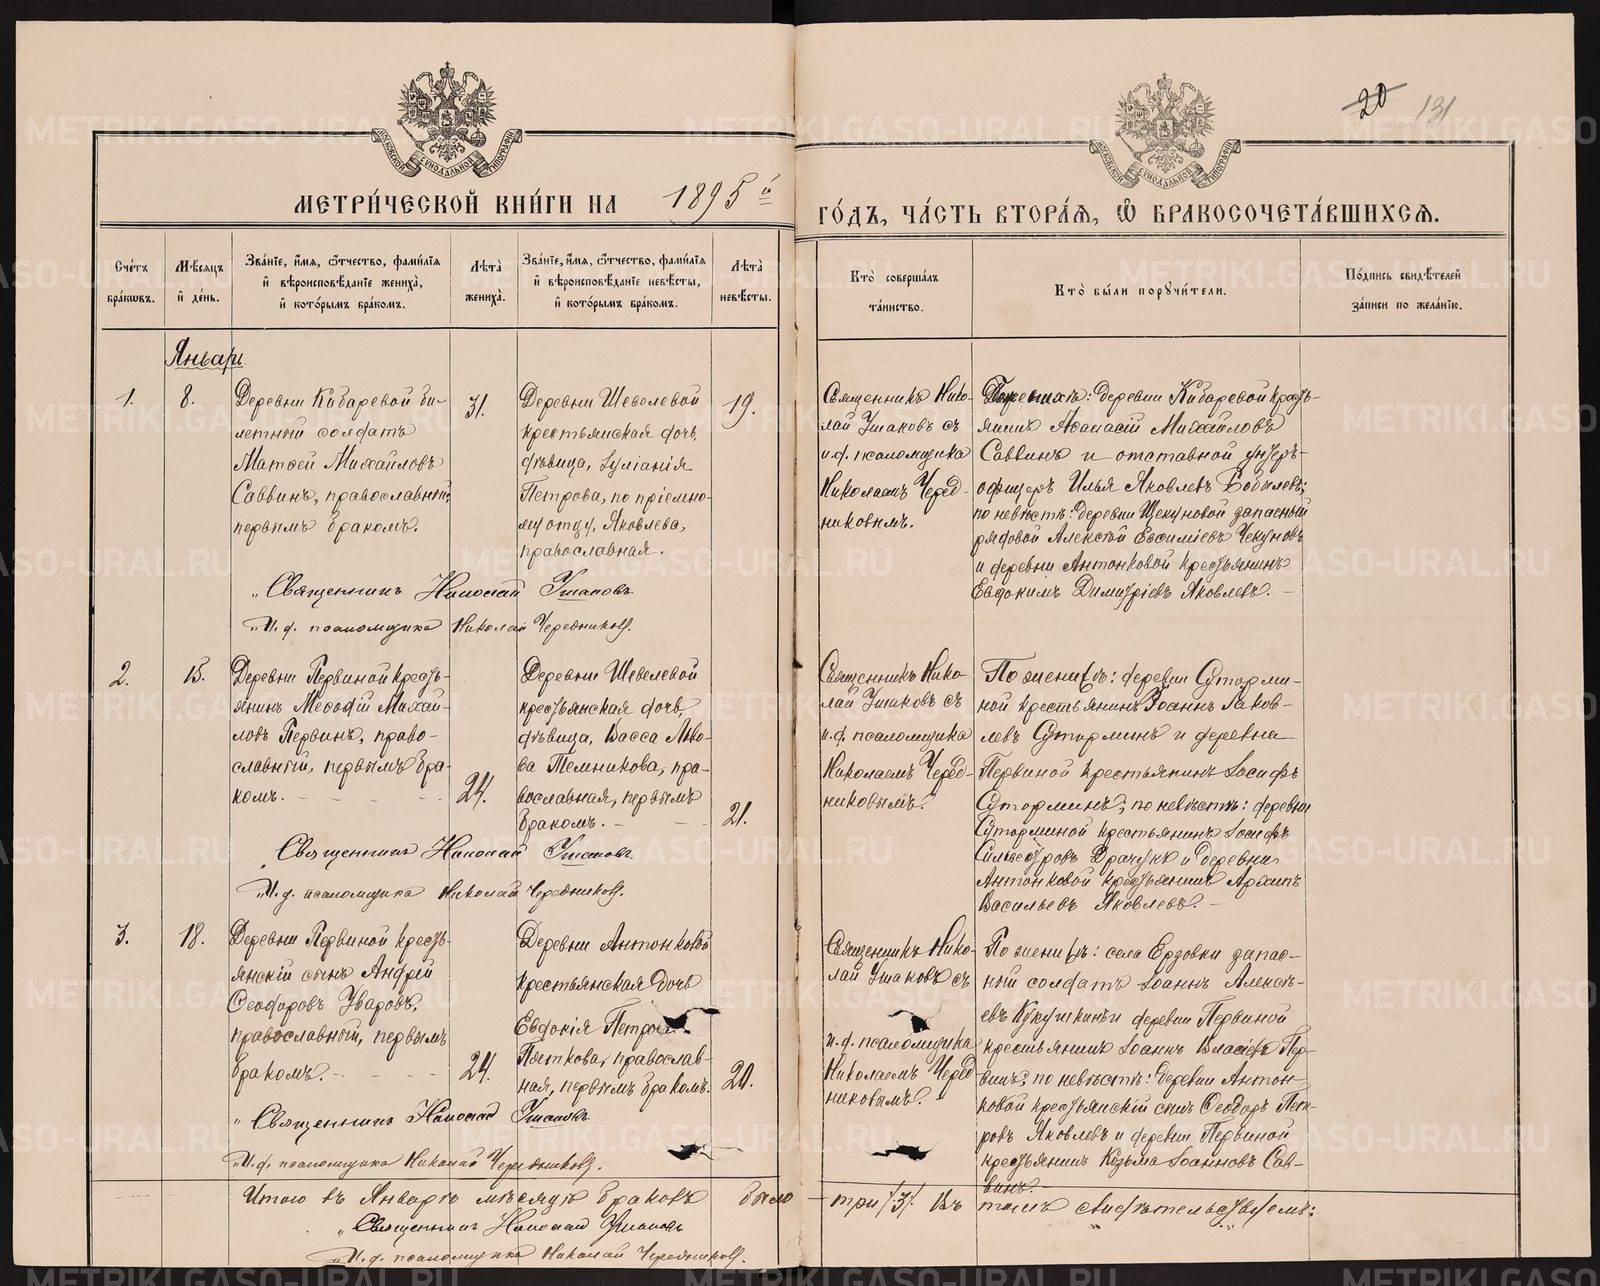 20 131
МОСКОВСКОЙ СѴНОДАЛЬНОЙ ТИПОГРАФІИ
МОСКОВСКОЙ СѴНОДАЛЬНОЙ ТИПОГРАФІИ
МЕТРИ́ЧЕСКОЙ КНИ́ГИ НА 1895й
ГО́ДЪ, ЧА́СТЬ ВТОРА́Ѧ, Ѽ БРАКОСОЧЕТА́ВШИХСѦ.
Сче́тъ бра́кѡвъ.
Мѣ́сѧцъ и́ де́нь.
Зва́нїе, и́мѧ, ѻ҆́тчество, фами́лїѧ
и́ вѣроисповѣ́данїе жениха̀,
и́ кото́рымъ бра́комъ.
Лѣ́та̀ жениха̀.
Зва́нїе, и́мѧ, ѻ҆́тчество, фами́лїѧ
и́ вѣроисповѣ́данїе невѣ́сты,
и́ кото́рымъ бра́комъ.
Лѣ́та̀ невѣ́сты.
Кто̀ соверша́лъ
та́инство.
Кто̀ бы́ли порꙋчи́тели.
По́дпись свидѣ́телей
за́писи по жела́нїю.
Январь
1.
8.
Деревни Кибаревой би-
летный солдатъ
Матѳей Михайловъ
Саввинъ, православный,
первымъ бракомъ.
31.
Деревни Шевелевой
крестьянская дочь,
дѣвица, Іуліанія
Петрова, по пріемно-
му отцу, Яковлева,
православная.
19.
Священникъ Нико-
лай Ушаковъ съ
и.д. псаломщика
Николаемъ Черед-
никовымъ.
деревни Кибаревой кресть-
янинъ Аѳанасій Михайловъ
Саввинъ и отставной унтеръ-
офицеръ Илья Яковлевъ Бобылевъ;
по невѣстѣ: деревни Щекуновой запасный
рядовой Алексѣй Евѳиміевъ Чекуновъ
и деревни Антонковой крестьянинъ
Евдокимъ Димитріевъ Яковлевъ. –
Священникъ Николай Ушаковъ
И.д. псаломщика Николай Чередниковъ.
2.
15.
Деревни Первиной кресть-
янинъ Меѳодій Михай-
ловъ Первинъ, право-
славный, первымъ бра-
комъ.
24.
Деревни Шевелевой
крестьянская дочь,
дѣвица, Васса Льво-
ва Темникова, пра-
вославная, первымъ
бракомъ. –
21.
Священникъ Нико-
лай Ушаковъ съ
и.д. псаломщика
Николаемъ Черед-
никовымъ.
По женихѣ: деревни Сутурми-
ной крестьянинъ Іоаннъ Іаков-
левъ Сутурминъ и деревни
Первиной крестьянинъ Іосифъ
Сутурминъ; по невѣстѣ: деревни
Сутурминой крестьянинъ Іосифъ
Сильвестровъ Драчукъ и деревни
Антонковой крестьянинъ Архипъ
Васильевъ Яковлевъ. –
Священникъ Николай Ушаковъ
И.д. псаломщика Николай Чередниковъ.
3.
18.
Деревни Первиной кресть-
янскій сынъ Андрей
Ѳеодоровъ Уваровъ,
православный, первымъ
бракомъ.
24.
Деревни Антонковой
крестьянская дочь
Евдокія Петрова
Пяткова, православ-
ная, первымъ бракомъ.
20.
Священникъ Нико-
лай Ушаковъ съ
и.д. псаломщика
Николаемъ Черед-
никовымъ.
По женихѣ: села Ерзовки запас-
ный солдатъ Іоаннъ Алексѣ-
евъ Кукушкинъ и деревни Первиной
крестьянинъ Іоаннъ Власіевъ Пер-
винъ; по невѣстѣ: деревни Антон-
ковой крестьянскій сынъ Ѳеодоръ Пет-
ровъ Яковлевъ и деревни Первиной
крестьянинъ Козьма Іоанновъ Сав-
винъ.
Священникъ Николай Ушаковъ
И.д. псаломщика Николай Чередниковъ.
Итого въ Январѣ мѣсяцѣ браковъ было три /3/. Въ томъ свидѣтельствуемъ:
Священникъ Николай Ушаковъ
И.д. псаломщика Николай Чередниковъ.
METRIKI.GASO-URAL.RU